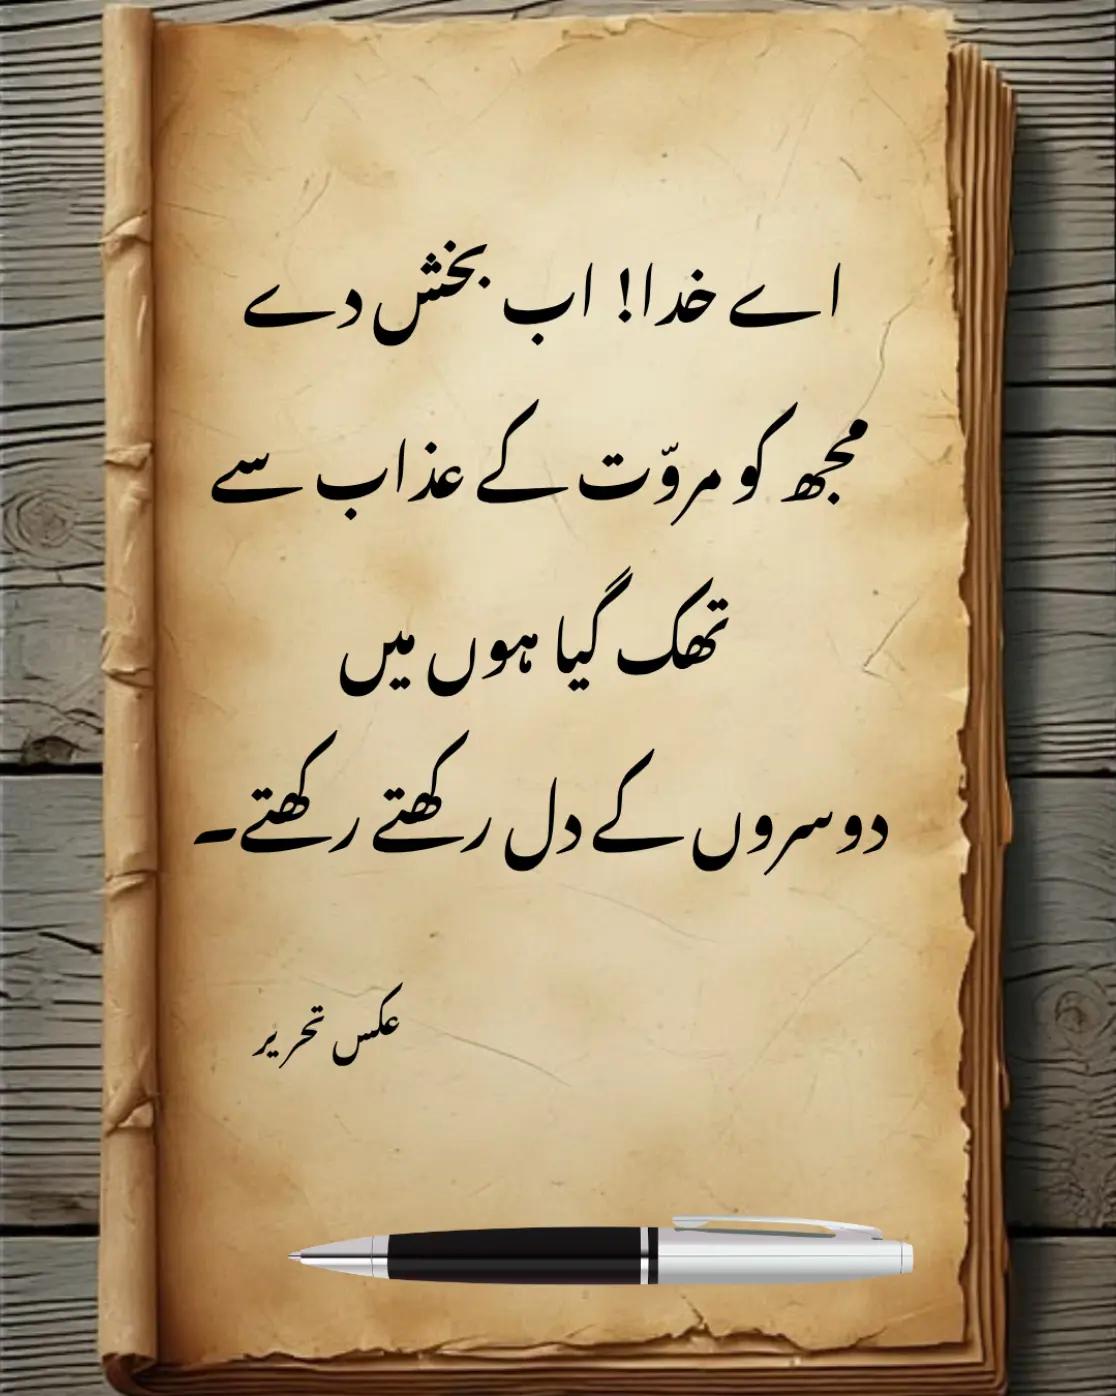 اے خدا! اب بخش دے
مجھ کو مروّت کے عذاب سے
تھک گیا ہوں میں
دوسروں کے دل رکھتے رکھتے۔
عکس تحریر